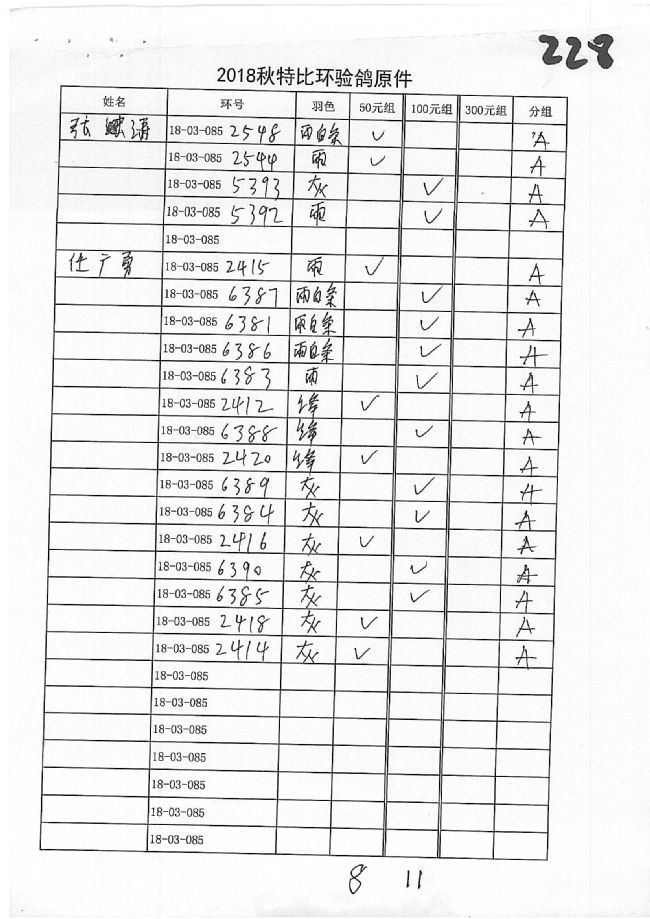 228
2018秋特比环验鸽原件
姓名 环号 羽色 50元组 100元组 300元组 分组
张 涛 18-03-085 2548 雨白条 ✓ A
18-03-085 2544 雨 ✓ A
18-03-085 5393 灰 ✓ A
18-03-085 5392 雨 ✓ A
18-03-085
任广勇 18-03-085 2415 雨 ✓ A
18-03-085 6387 雨白条 ✓ A
18-03-085 6381 雨白条 ✓ A
18-03-085 6386 雨白条 ✓ A
18-03-085 6383 雨 ✓ A
18-03-085 2412 绛 ✓ A
18-03-085 6388 绛 ✓ A
18-03-085 2420 绛 ✓ A
18-03-085 6389 灰 ✓ A
18-03-085 6384 灰 ✓ A
18-03-085 2416 灰 ✓ A
18-03-085 6390 灰 ✓ A
18-03-085 6385 灰 ✓ A
18-03-085 2418 灰 ✓ A
18-03-085 2414 灰 ✓ A
18-03-085
18-03-085
18-03-085
18-03-085
18-03-085
18-03-085
18-03-085
8 11